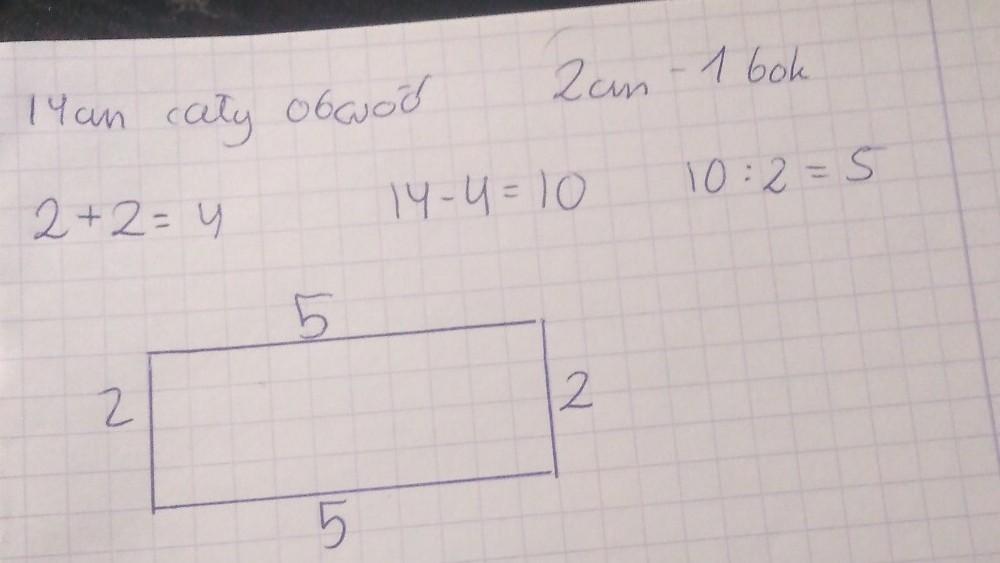 14cm cały obwód 2cm - 1 bok
2+2= 4 14-4=10 10:2=5
5
2 2
5